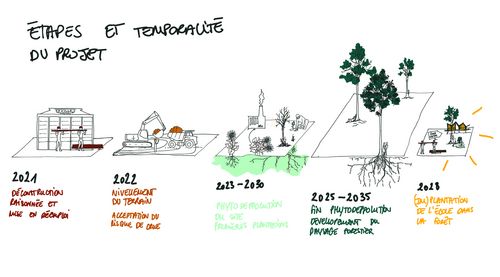 ÉTAPES ET TEMPORALITÉ
DU PROJET
2021
DÉCONSTRUCTION
RAISONNÉE ET
MISE EN RÉEMPLOI
2022
NIVELLEMENT
DU TERRAIN
ACCEPTATION DU
RISQUE DE CRUE
2023-2030
PHYTODÉPOLLUTION
DU SITE
PREMIÈRES PLANTATIONS
2025-2035
FIN PHYTODÉPOLLUTION
DEVELOPPEMENT DU
PAYSAGE FORESTIER
2028
PLANTATION
DE L'ÉCOLE DANS
LA FORÊT